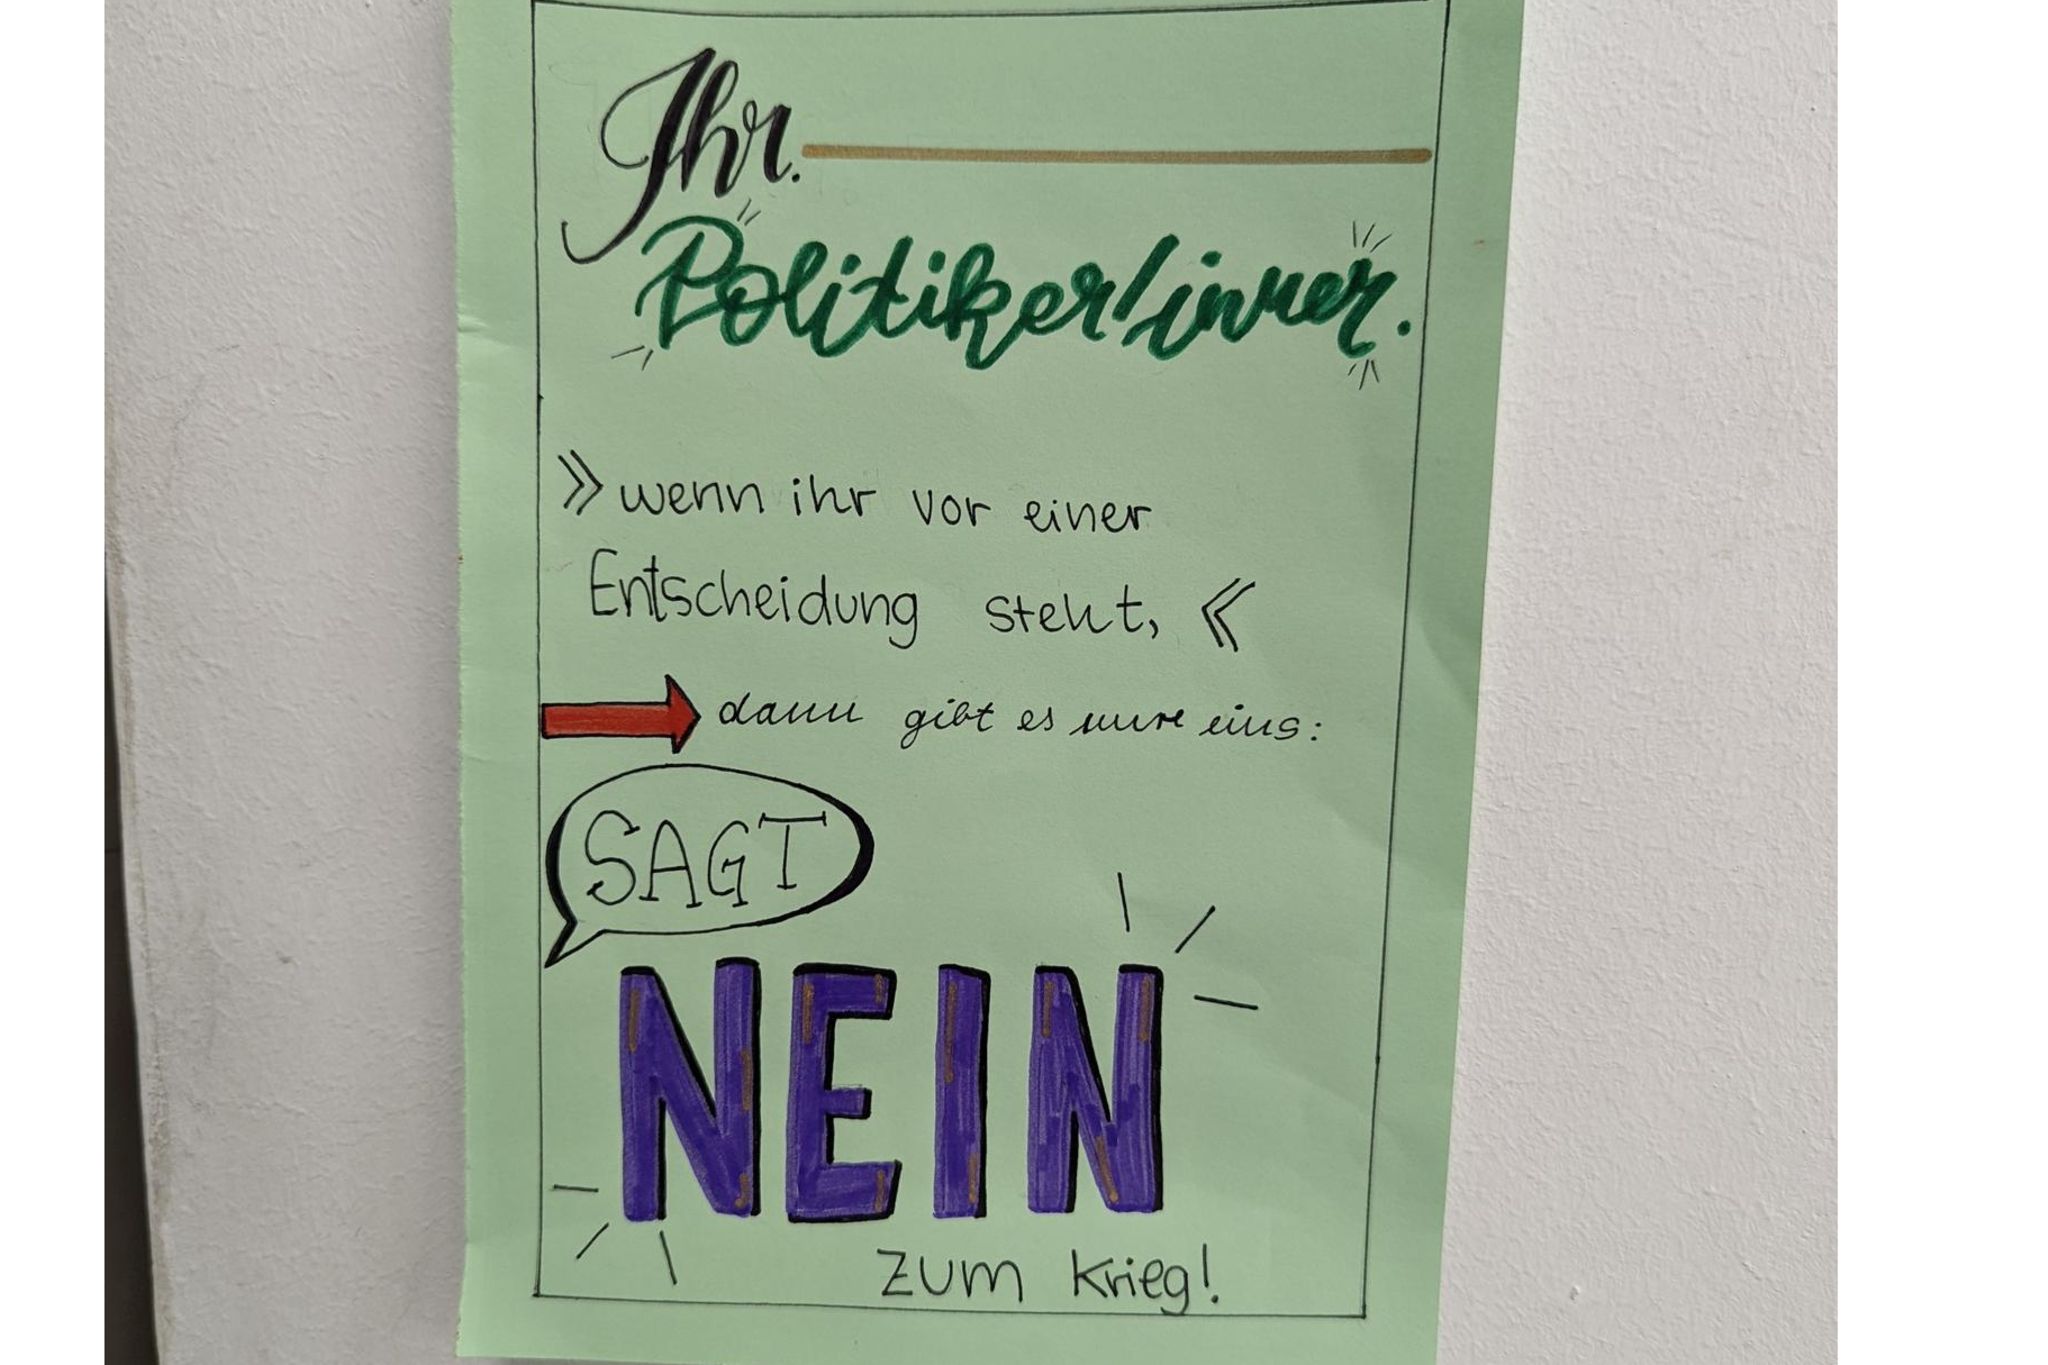 Ihr.
Politiker/innen.
»wenn ihr vor einer
Entscheidung steht, «
dann gibt es nur eins:
SAGT
NEIN
zum Krieg!